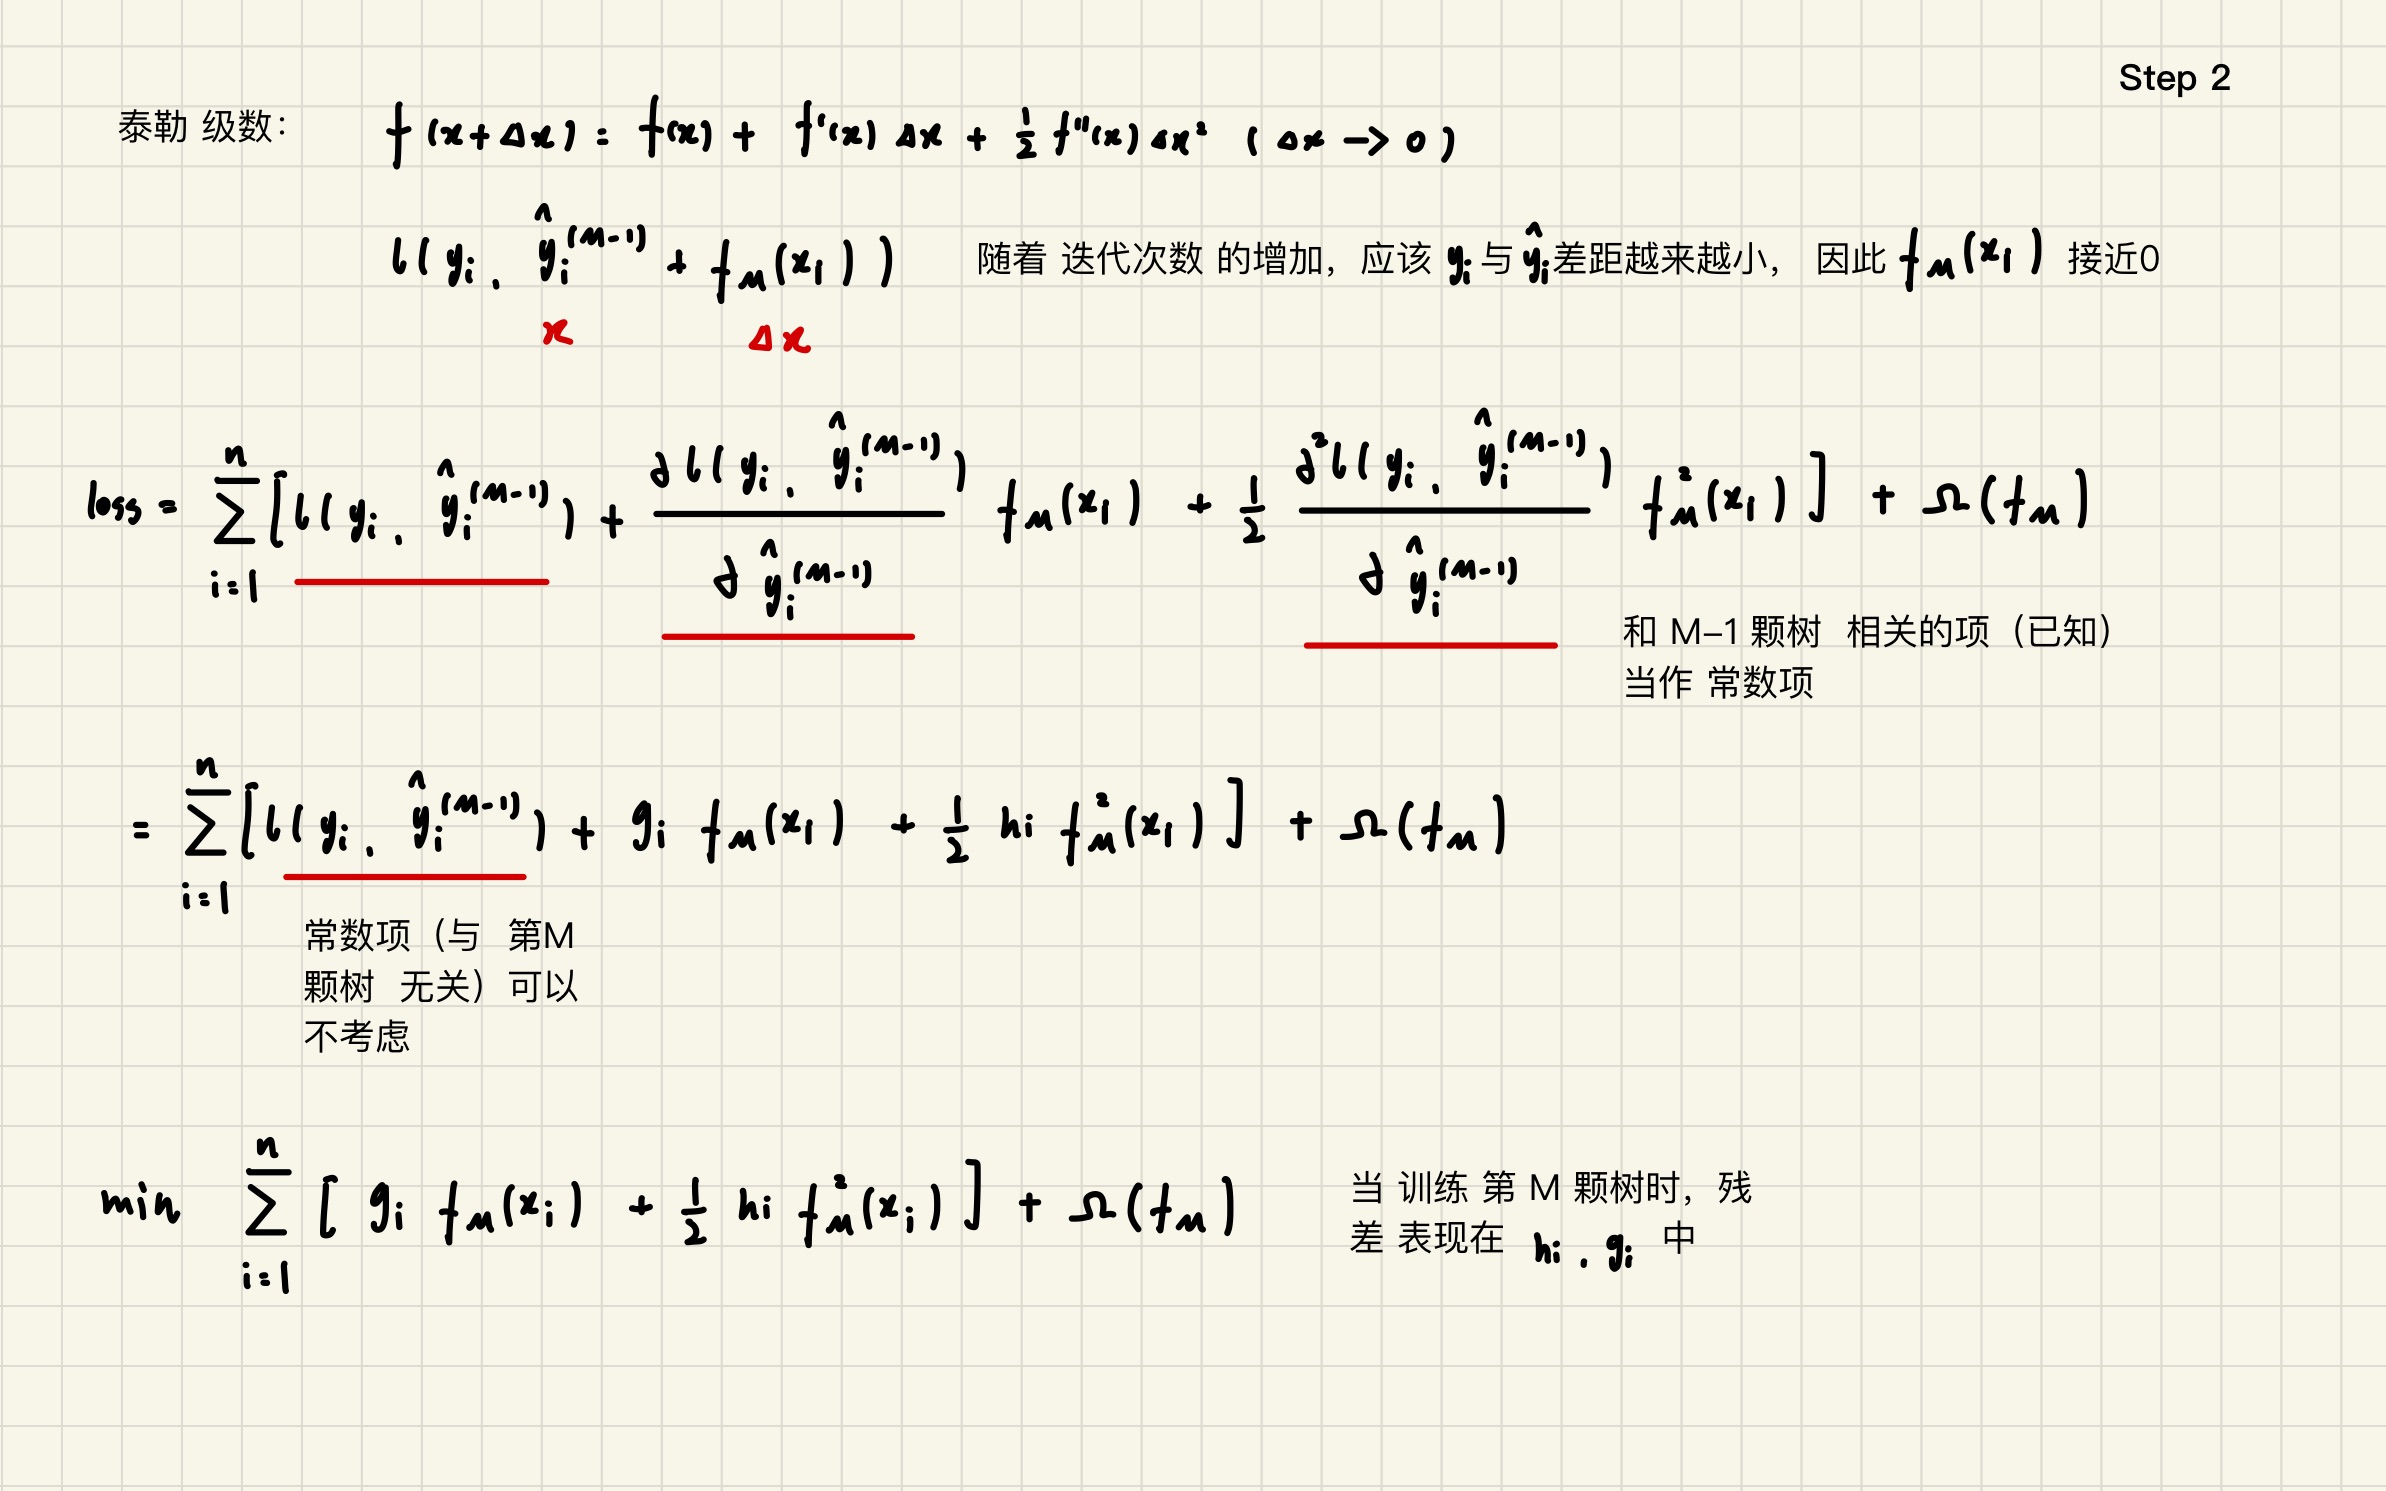 Step 2
泰勒 级数： f(x+Δx) = f(x) + f'(x) Δx + 1/2 f''(x) Δx² (Δx → 0)
l(yᵢ, ŷᵢ^(M-1) + f_M(xᵢ)) 随着 迭代次数 的增加，应该 yᵢ 与 ŷᵢ 差距越来越小， 因此 f_M(xᵢ) 接近0
x Δx
loss = Σ_{i=1}^{n} [l(yᵢ, ŷᵢ^(M-1)) + ∂l(yᵢ, ŷᵢ^(M-1)) / ∂ŷᵢ^(M-1) f_M(xᵢ) + 1/2 ∂²l(yᵢ, ŷᵢ^(M-1)) / ∂ŷᵢ^(M-1) f_M²(xᵢ)] + Ω(f_M)
和 M-1 颗树 相关的项（已知）
当作 常数项
= Σ_{i=1}^{n} [l(yᵢ, ŷᵢ^(M-1)) + gᵢ f_M(xᵢ) + 1/2 hᵢ f_M²(xᵢ)] + Ω(f_M)
常数项（与 第M
颗树 无关）可以
不考虑
min Σ_{i=1}^{n} [gᵢ f_M(xᵢ) + 1/2 hᵢ f_M²(xᵢ)] + Ω(f_M)
当 训练 第 M 颗树时，残
差 表现在 hᵢ, gᵢ 中